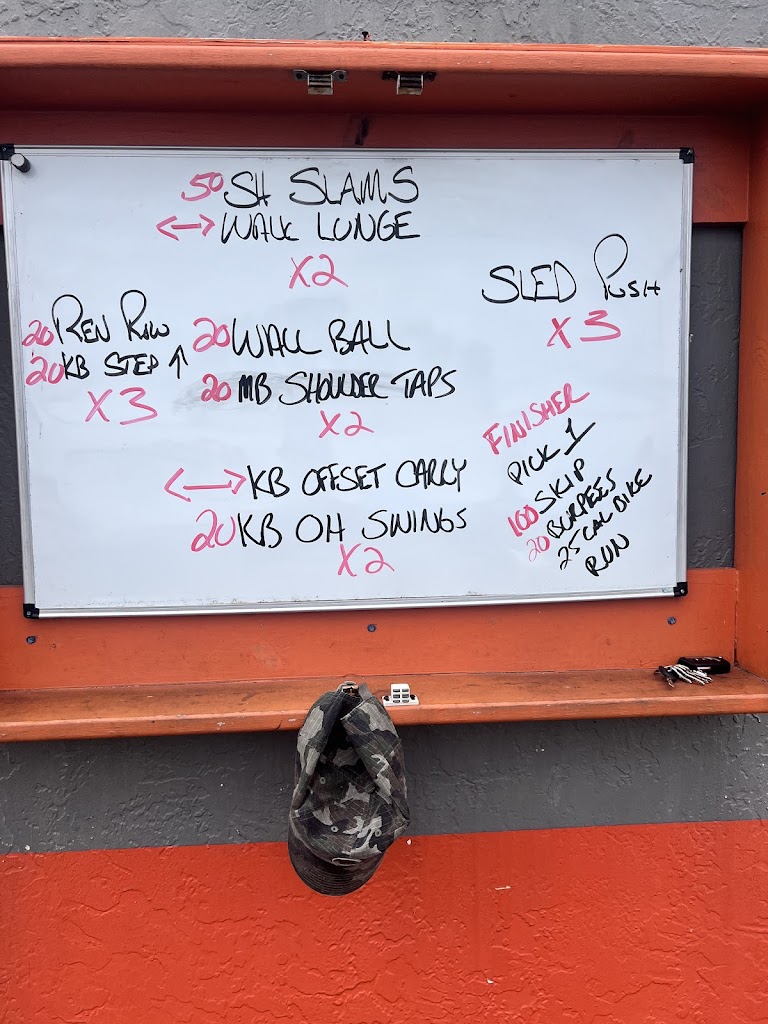 50 SH SLAMS
<-> WALK LUNGE
X2
20 REN ROW
20 KB STEP ↑
X3
20 WALL BALL
20 MB SHOULDER TAPS
X2
<-> KB OFFSET CARRY
20 KB OH SWINGS
X2
SLED PUSH
X3
FINISHER
PICK 1
100 SKIP
20 BURPEES
25 CAL BIKE
RUN